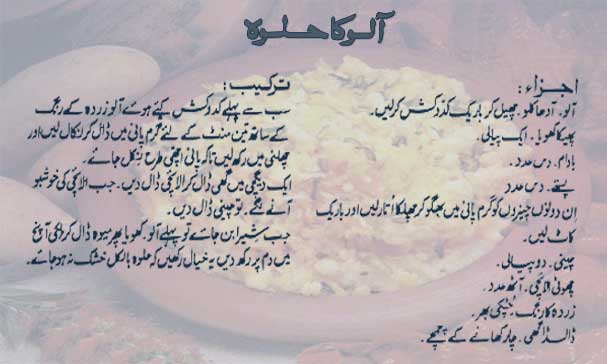 آلو کا حلوہ
اجزاء:
آلو۔ آدھا کلو۔ چھیل کر باریک کدوکش کرلیں۔
پھیکا کھویا۔ ایک پیالی۔
بادام۔ دس عدد۔
پستے۔ دس عدد۔
ان دونوں چیزوں کو گرم پانی میں بھگو کر چھلکا اُتار لیں اور باریک
کاٹ لیں۔
چینی۔ دو پیالی۔
چھوٹی الائچی۔ آٹھ عدد۔
زردہ کا رنگ۔ چُٹکی بھر۔
ڈالڈا گھی۔ چار کھانے کے چمچے۔
ترکیب:
سب سے پہلے کدوکش کیئے ہوئے آلو زردہ کے رنگ
کے ساتھ تین منٹ کے لئے گرم پانی میں ڈال کر نکال لیں اور
چھلنی میں رکھ لیں تاکہ پانی اچھی طرح نکل جائے۔
ایک دیگچی میں گھی ڈال کر الائچی ڈال دیں۔ جب الائچی کی خوشبو
آنے لگے۔ تو چینی ڈال دیں۔
جب شیرا بن جائے تو پہلے آلو۔ کھویا پھر میوہ ڈال کر ہلکی آنچ
میں دم پر رکھ دیں یہ خیال رکھیں کہ حلوہ بالکل خشک نہ ہو جائے۔